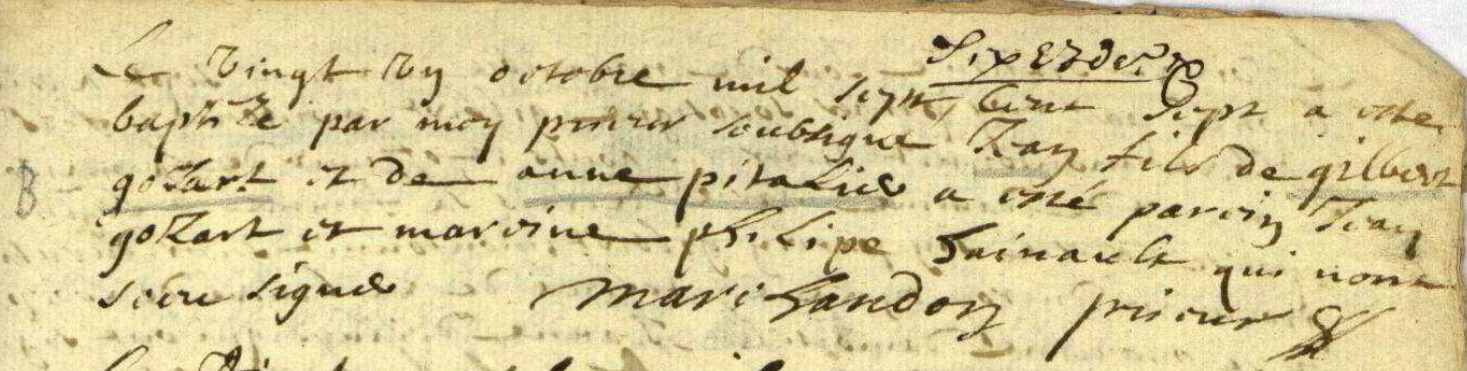 six et der
Le vingt un octobre mil sept cent sept a este
baptize par moy prieur soubsigne Jean fils de gilbert
B gozart et de anne pitalier a esté parein Jean
gozart et mareine philipe hainault qui nont
sceu signer marchandon prieur